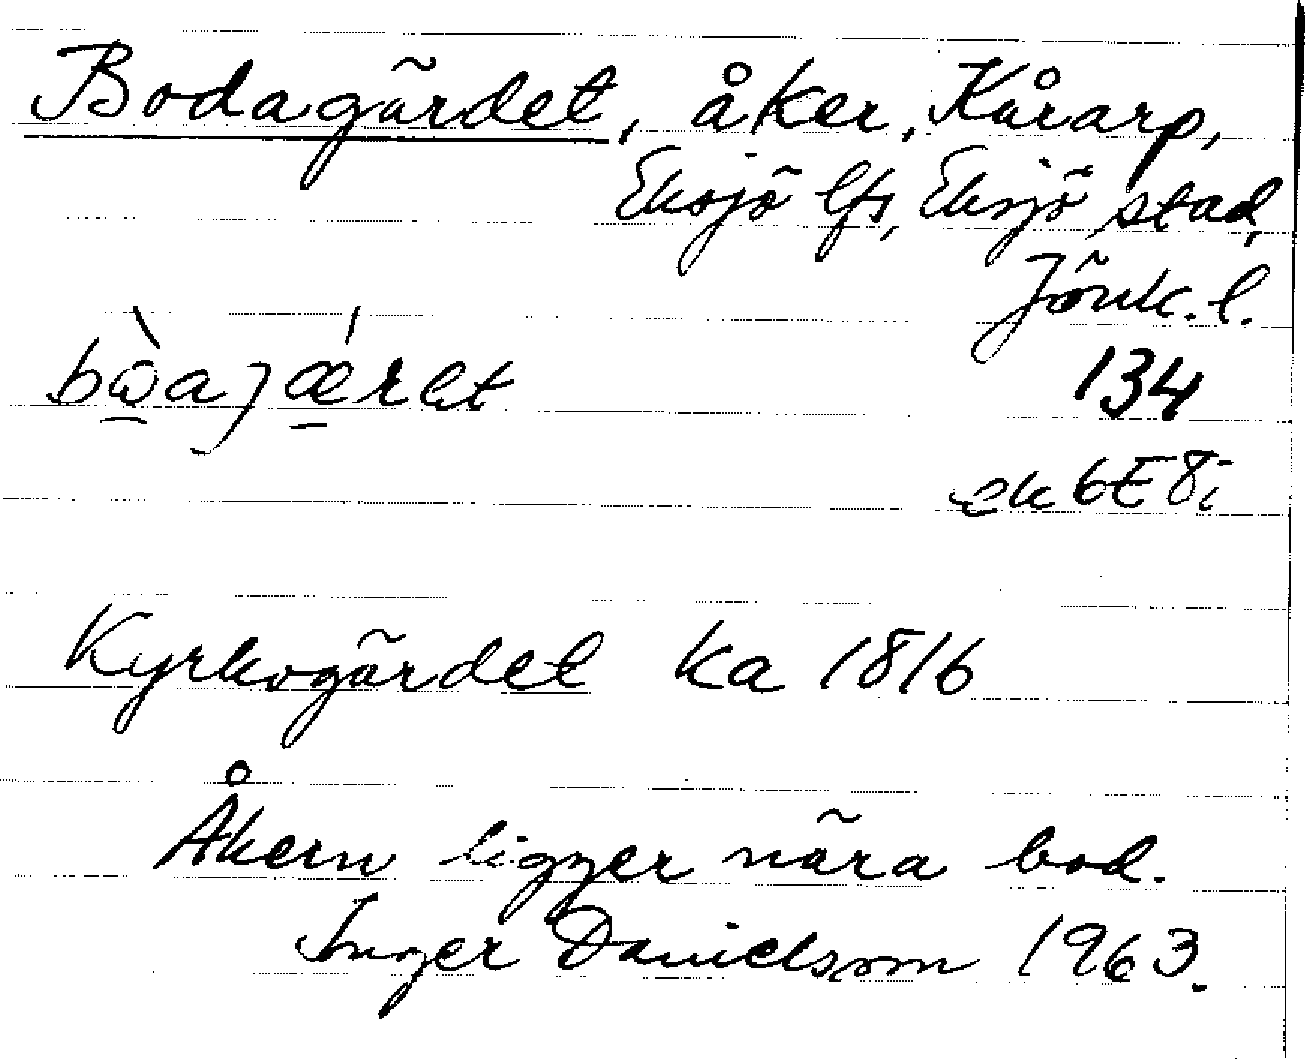 Bodagärdet, åker, Kårarp,
Eksjö lfs, Eksjö stad,
Jönk. l.
bὼajǽrət
134
ek 6E 8i
Kyrkogärdet ka 1816
Åkern ligger nära bod.
Inger Danielsson 1963.